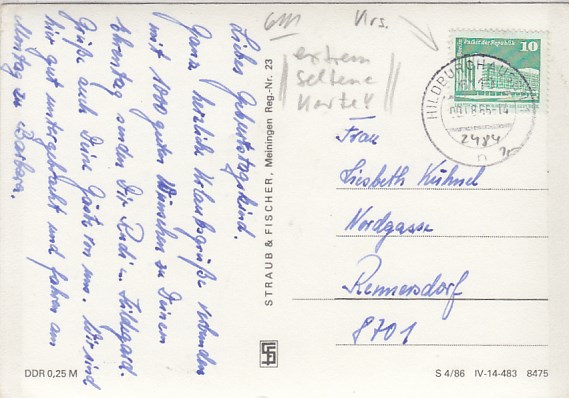 Liebes Geburtstagskind.
Ganz herzliche Urlaubsgrüße verbunden
mit 1000 guten Wünschen zu Deinem
Ehrentag senden Dir Rudi u. Hildegard.
Grüße auch Deine Gäste von uns. Wir sind
hier gut untergebracht und fahren am
Montag zu Barbara.
DDR 0,25 M
STRAUB & FISCHER, Meiningen Reg.-Nr. 23
extrem
seltene
Karte!!
10
HILDBURGHAUSEN
Frau
Liesbeth Kühnel
Nordgasse
Rennersdorf
8701
S 4/86 IV-14-483 8475